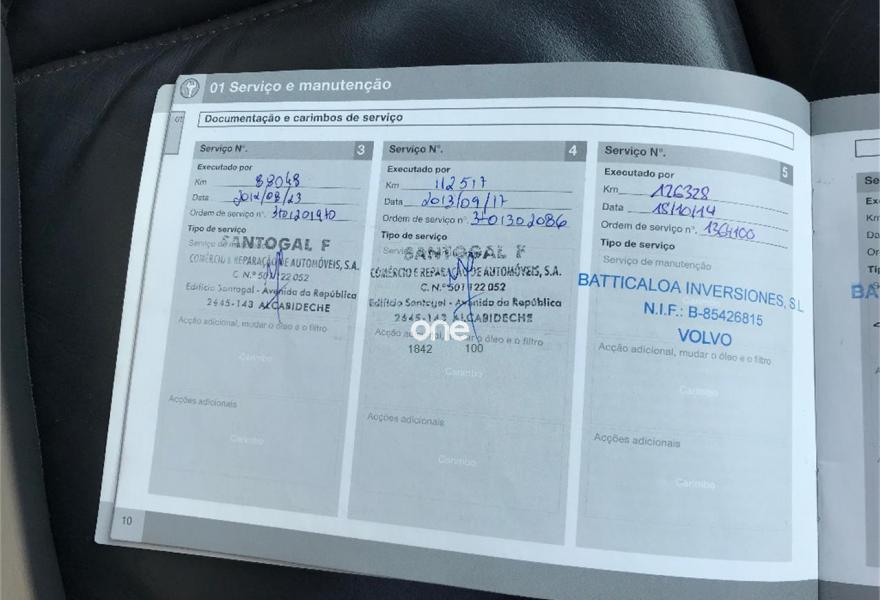 01 Serviço e manutenção
01
Documentação e carimbos de serviço
Serviço Nº. 3
Executado por
Km 88048
Data 2012/08/23
Ordem de serviço nº.
Tipo de serviço
SANTOGAL F
COMÉRCIO E REPARAÇÃO DE AUTOMÓVEIS, S.A.
C. N.º 501 122 052
Edifício Santogal - Avenida da República
2645-143 ALCABIDECHE
Acção adicional, mudar o óleo e o filtro
Carimbo
Acções adicionais
Carimbo
Serviço Nº. 4
Executado por
Km 112517
Data 2013/09/17
Ordem de serviço nº. 3101302086
Tipo de serviço
SANTOGAL F
COMÉRCIO E REPARAÇÃO DE AUTOMÓVEIS, S.A.
C. N.º 501 122 052
Edifício Santogal - Avenida da República
2645-143 ALCABIDECHE
one
Acção adicional, mudar o óleo e o filtro
1842 100
Carimbo
Acções adicionais
Carimbo
Serviço Nº. 5
Executado por
Km 126328
Data 18/10/14
Ordem de serviço nº.
Tipo de serviço
Serviço de manutenção
BATTICALOA INVERSIONES, S.L
N.I.F.: B-85426815
VOLVO
Acção adicional, mudar o óleo e o filtro
Carimbo
Acções adicionais
Carimbo
10
Se
Ex
Km
Da
Or
BA